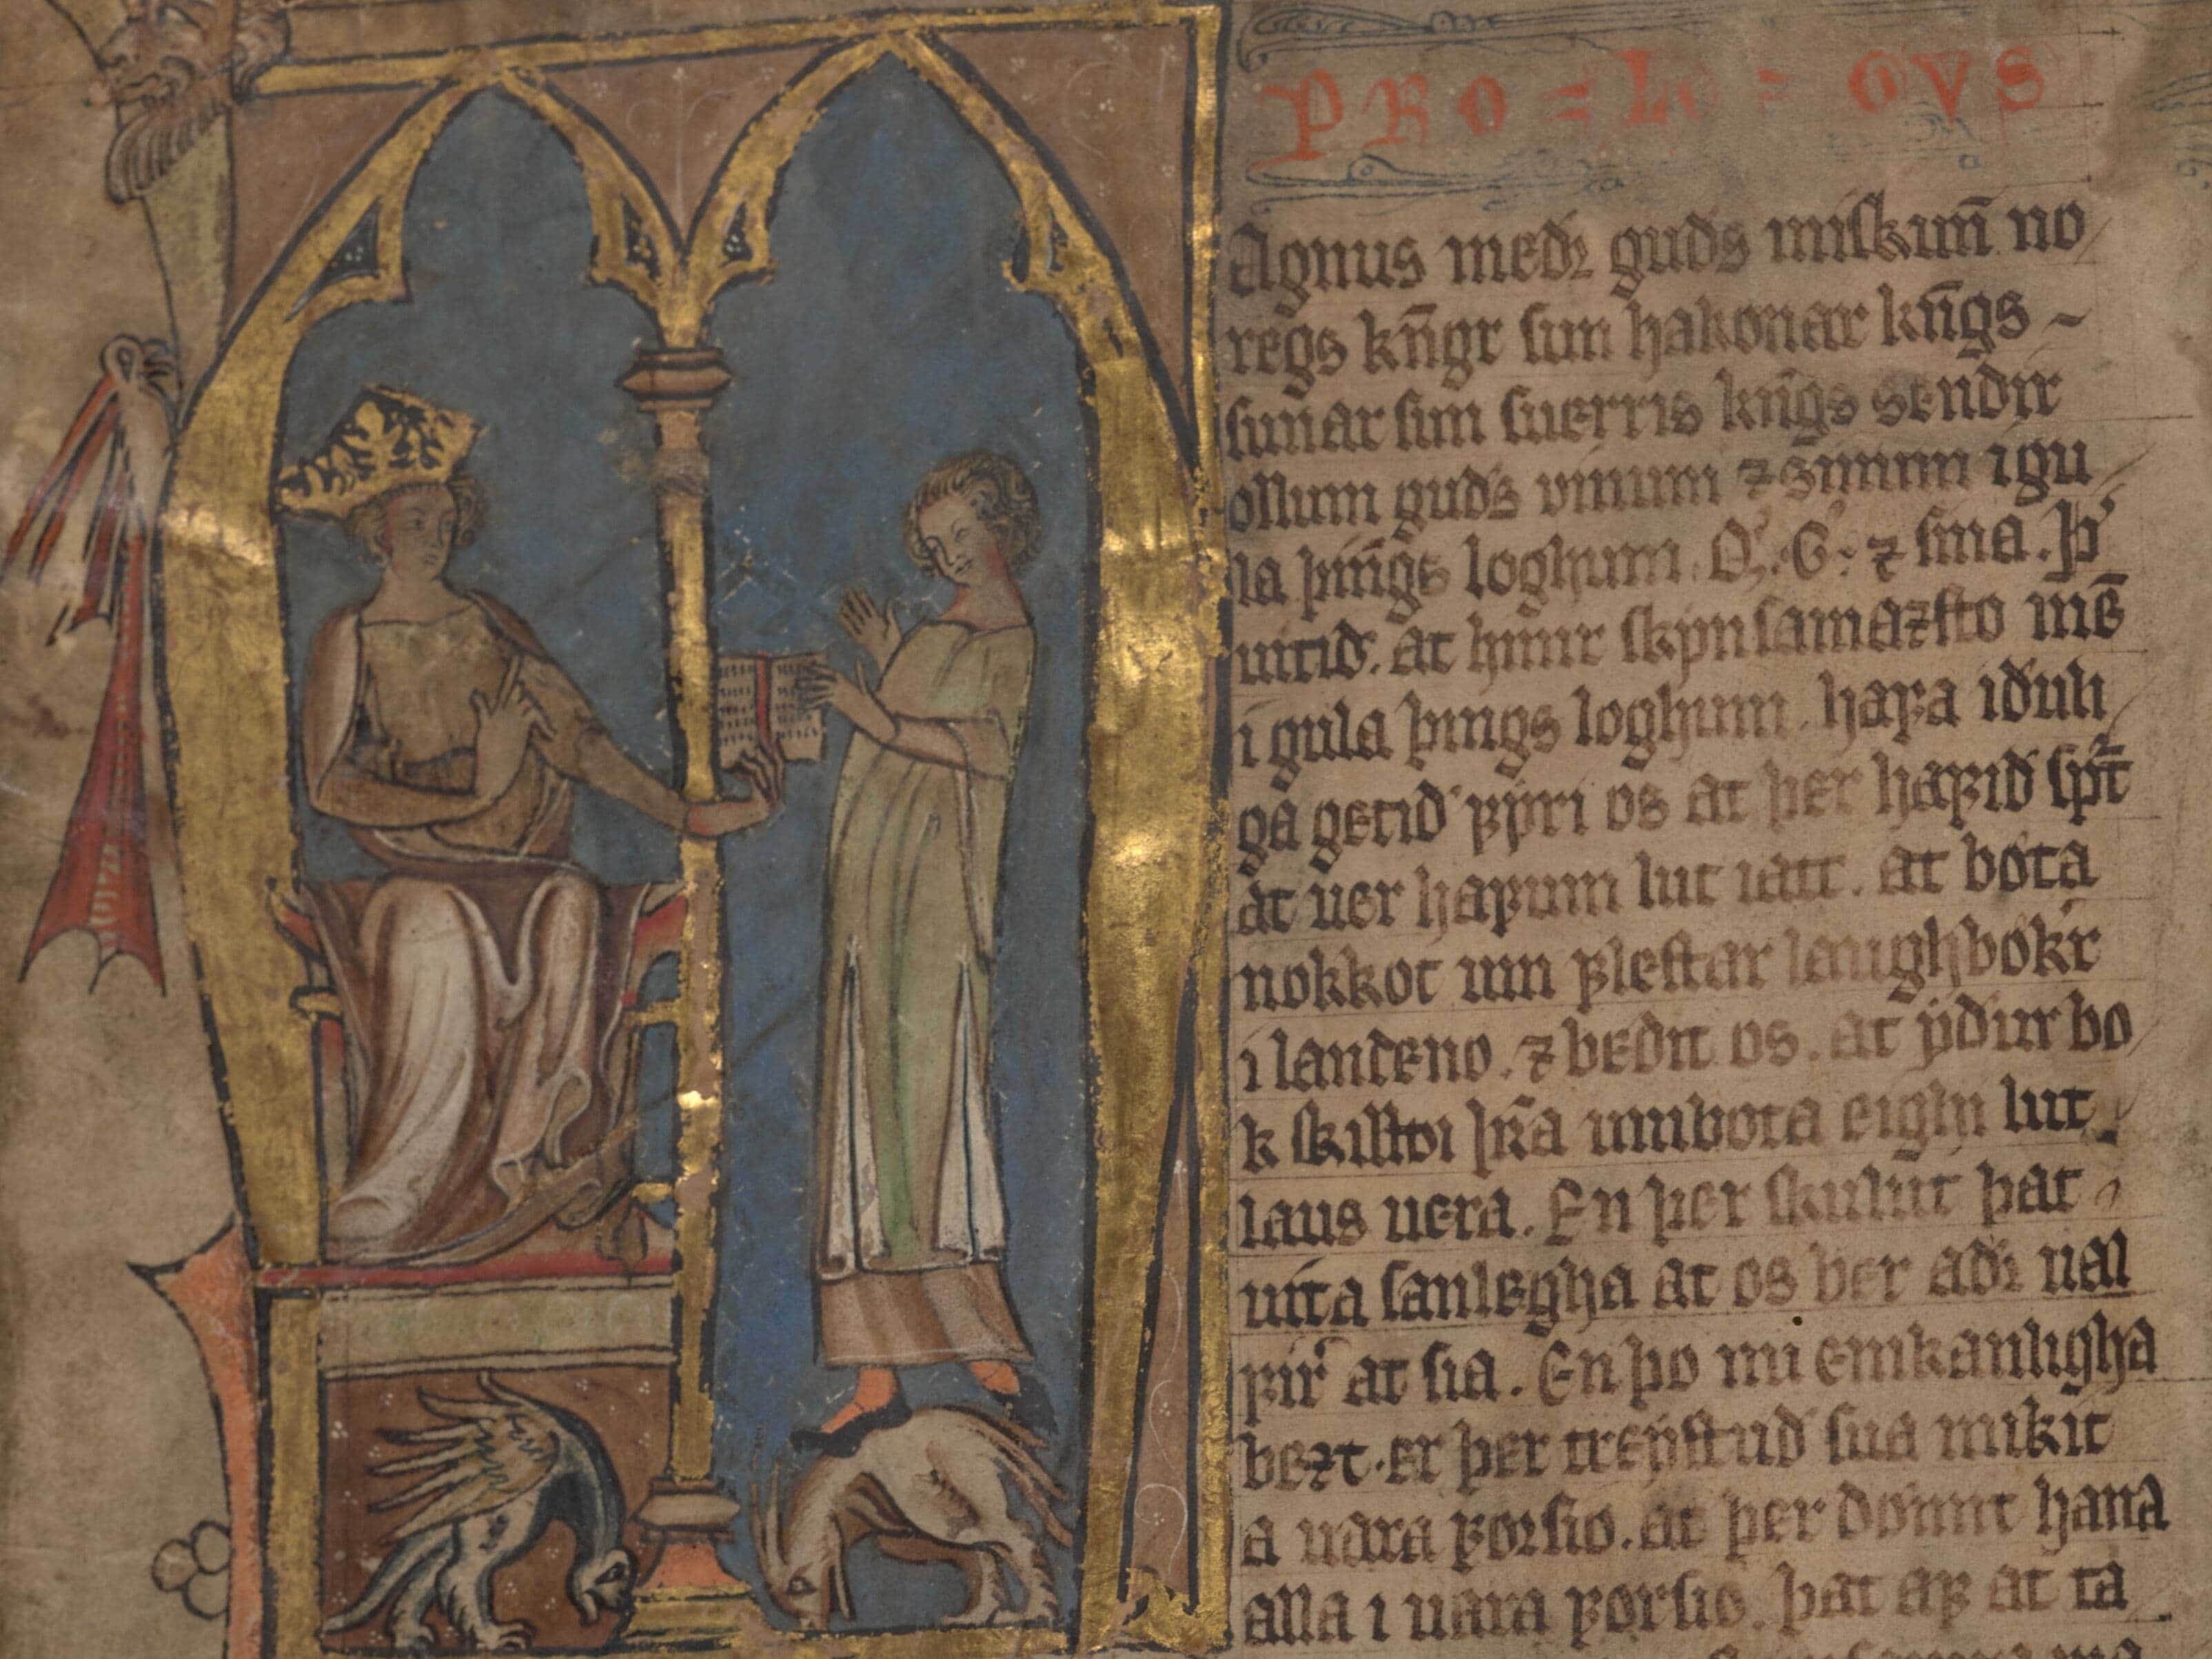 PRO = LO = GVS
Agnus medꝛ guds miſkun̄ no
regs kn̄gr ſun hakonar kn̄gs ~
ſunar ſun ſuerris kn̄gs sendir
ollum guds vinum ⁊ sinum i gu
la þin̄gs loghum. Q. G. ⁊ ſina. þ'
uitið. at hinir ſkynſamaꝛſto men̄
i gula þings loghum. haꝼa iðuli
ga getið ꝼyri os at þer haꝼið ſpꝛt̄
at uer haꝼum lut iatt. at bóta
nokkot um ꝼleſtar laughbókr
i landeno. ⁊ bedit os. at ydur bo
k ſkilldi þr̄a umbota eighi lut
laus uera. En þer ſkulut þat
uita ſanlegha at os ber adꝛ ual
ꝼir at ſia. En þo nu einkanligha
beꝛt. er þer treyſtud ſua mikit
a uara ꝼorſio. at þer dómit hana
alla i uara ꝼorſio. þat aꝼ at ta